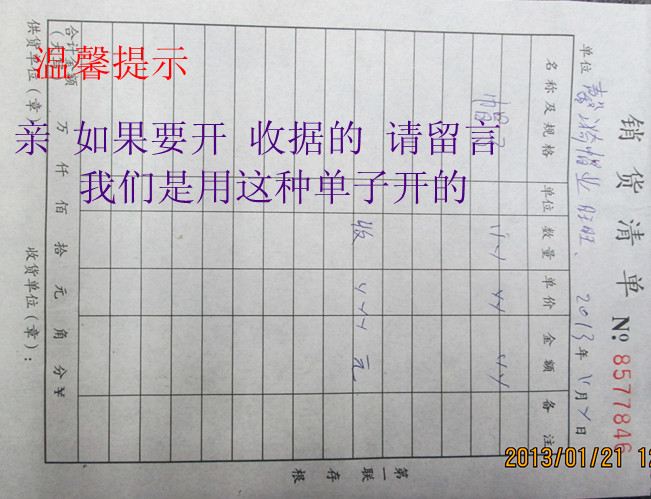 温馨提示
亲 如果要开 收据的 请留言
我们是用这种单子开的
销货清单 № 8577846
单位 2013年 月 日
名称及规格 单位 数量 单价 金额 备注
帽子
收 元
合计金额 万 仟 佰 拾 元 角 分 ¥
供货单位(章) 收货单位(章):
第一联 存根
2013/01/21 12